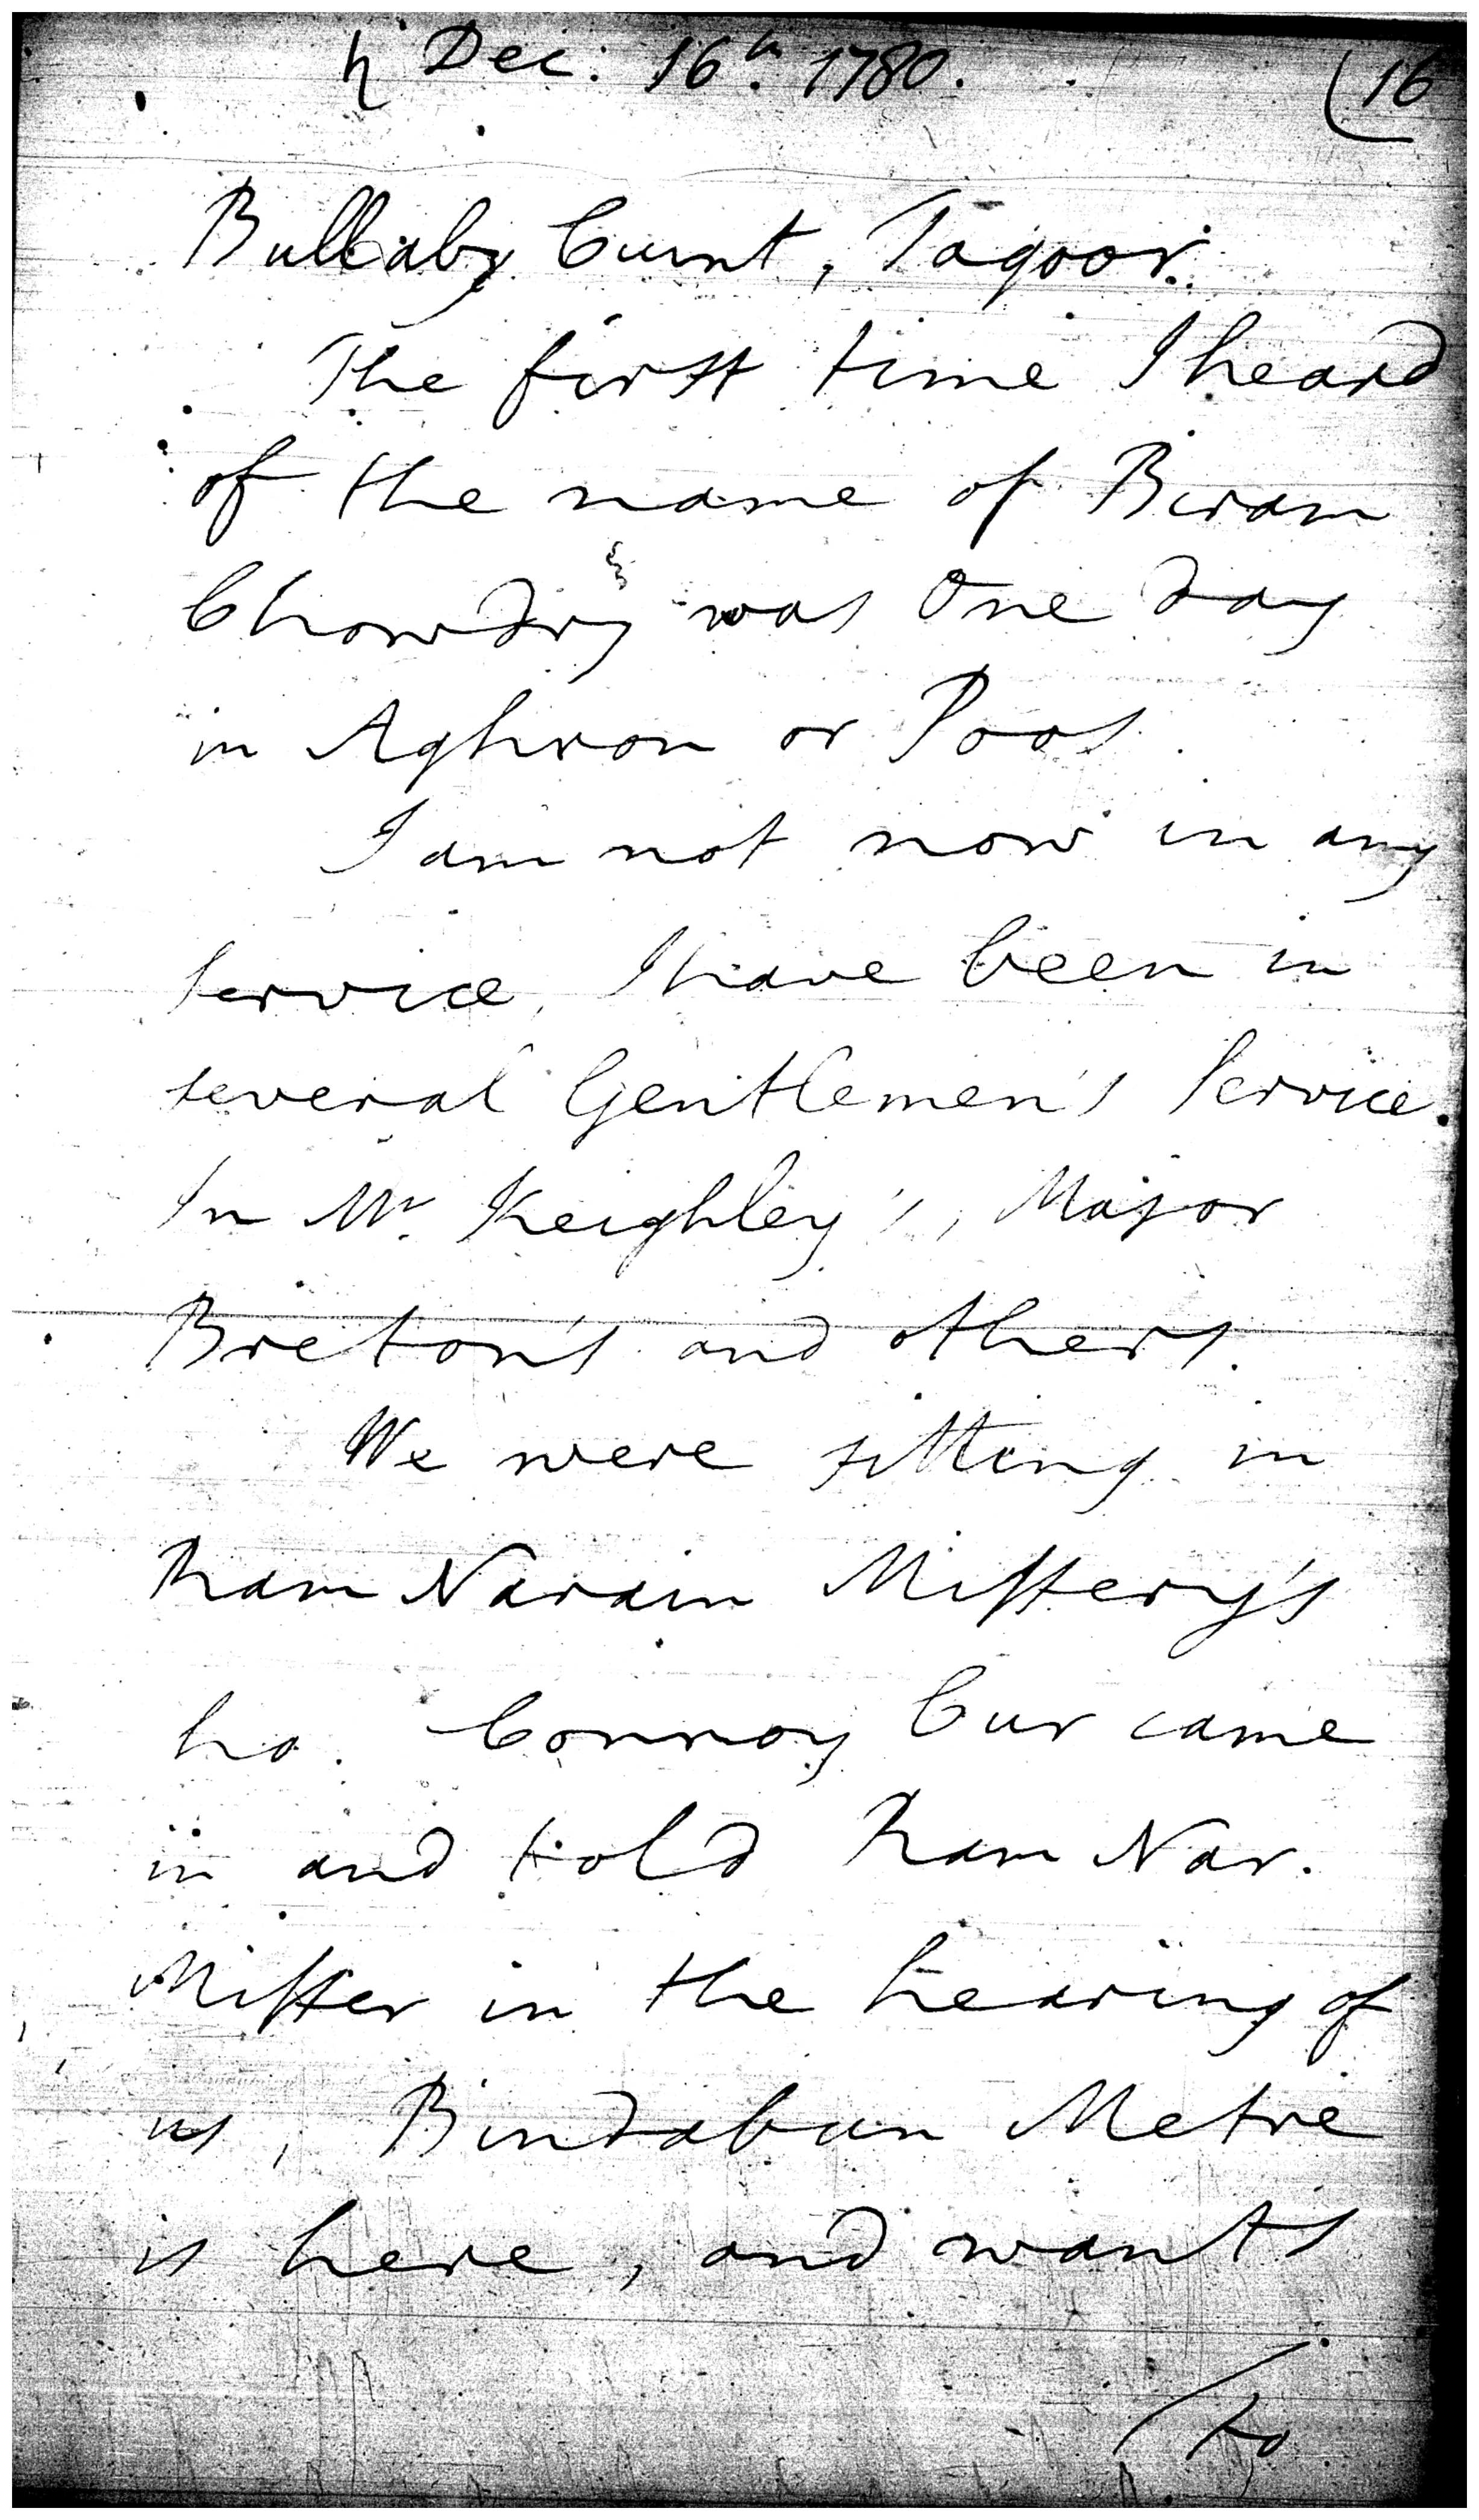 ♄ Dec: 16th 1780. (16
Bullaby Cunt, Tagoor.
The first time I heard
of the name of Biram
Chowdry was One day
in Aghron or Poos.
I am not now in any
Service, I have been in
several Gentlemen's Service.
In Mr. Keighley's, Major
Breton's and others.
We were sitting in
Ram Narain Mistery's
ho. Connoy Cur came
in and told Ram Nar.
Mister in the hearing of
us, Bindabun Metre
is here, and wants
/to